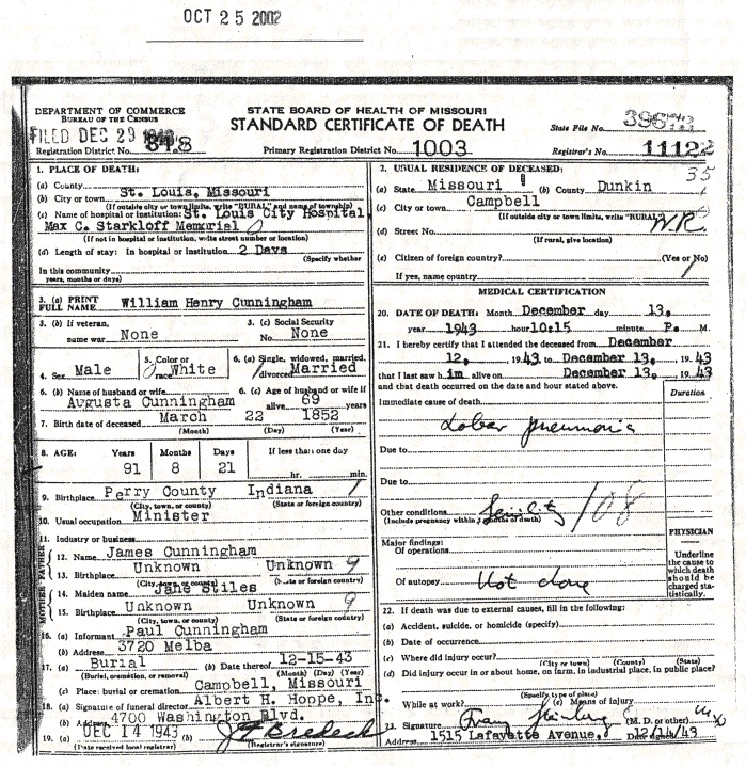 OCT 25 2002
DEPARTMENT OF COMMERCE
BUREAU OF THE CENSUS
STATE BOARD OF HEALTH OF MISSOURI
STANDARD CERTIFICATE OF DEATH
FILED DEC 29
State File No.
Registration District No. 318
Primary Registration District No. 1003
Registrar's No. 11122
1. PLACE OF DEATH:
(a) County
(b) City or town St. Louis, Missouri
(If outside city or town limits, write "RURAL" and name of township)
(c) Name of hospital or institution: St. Louis City Hospital
Max C. Starkloff Memorial
(If not in hospital or institution, write street number or location)
(d) Length of stay: In hospital or institution 2 Days
(Specify whether
In this community
years, months or days)
2. USUAL RESIDENCE OF DECEASED: 35
(a) State Missouri (b) County Dunkin
(c) City or town Campbell
(If outside city or town limits, write "RURAL")
(d) Street No. N.R.
(If rural, give location)
(e) Citizen of foreign country? (Yes or No)
If yes, name country
3. (a) PRINT FULL NAME William Henry Cunningham
3. (b) If veteran, name war None
3. (c) Social Security No. None
4. Sex Male
5. Color or race White
6. (a) Single, widowed, married, divorced Married
6. (b) Name of husband or wife Avgusta Cunningham
6. (c) Age of husband or wife if alive 69 years
7. Birth date of deceased March 22 1852
(Month) (Day) (Year)
8. AGE: Years Months Days If less than one day
91 8 21 hr. min.
9. Birthplace Perry County Indiana
(City, town, or county) (State or foreign country)
10. Usual occupation Minister
11. Industry or business
FATHER
12. Name James Cunningham
13. Birthplace Unknown Unknown 9
(City, town, or county) (State or foreign country)
MOTHER
14. Maiden name Jane Stiles
15. Birthplace Unknown Unknown 9
(City, town, or county) (State or foreign country)
16. (a) Informant Paul Cunningham
(b) Address 3720 Melba
17. (a) Burial (b) Date thereof 12-15-43
(Burial, cremation, or removal) (Month) (Day) (Year)
(c) Place: burial or cremation Campbell, Missouri
18. (a) Signature of funeral director Albert H. Hoppe, Inc.
(b) Address 4700 Washington Blvd.
19. (a) DEC 14 1943 (b) J. F. Bredeck
(Date received local registrar) (Registrar's signature)
MEDICAL CERTIFICATION
20. DATE OF DEATH: Month December day 13,
year 1943 hour 10:15 minute P. M.
21. I hereby certify that I attended the deceased from December
12, 1943 to December 13, 1943
that I last saw him alive on December 13, 1943
and that death occurred on the date and hour stated above.
Duration
Immediate cause of death
Lobar pneumonia
Due to
Due to
Other conditions Senility 108
(Include pregnancy within 3 months of death)
PHYSICIAN
Underline the cause to which death should be charged statistically.
Major findings:
Of operations
Of autopsy Not done
22. If death was due to external causes, fill in the following:
(a) Accident, suicide, or homicide (specify)
(b) Date of occurrence
(c) Where did injury occur?
(City or town) (County) (State)
(d) Did injury occur in or about home, on farm, in industrial place, in public place?
(Specify type of place)
While at work? (e) Means of injury
23. Signature (M. D. or other)
Address 1515 Lafayette Avenue, 12/14/43